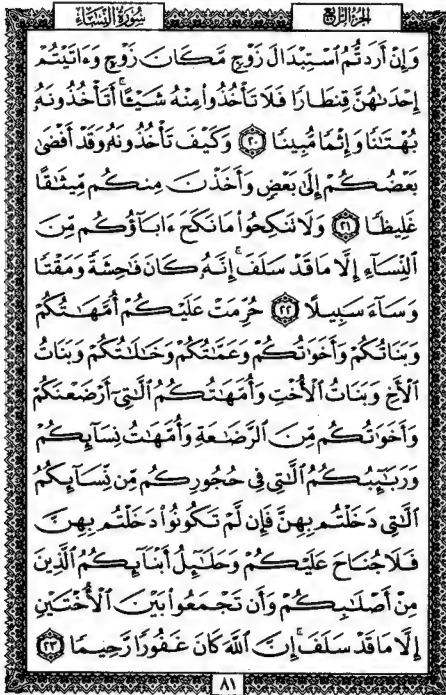 سُورَةُ النِّسَاءِ
الجُزءُ الرَّابِعُ
وَإِنْ أَرَدتُّمُ ٱسْتِبْدَالَ زَوْجٍ مَّكَانَ زَوْجٍ وَءَاتَيْتُمْ
إِحْدَىٰهُنَّ قِنطَارًا فَلَا تَأْخُذُوا۟ مِنْهُ شَيْـًٔا ۚ أَتَأْخُذُونَهُۥ
بُهْتَـٰنًا وَإِثْمًا مُّبِينًا ٢٠ وَكَيْفَ تَأْخُذُونَهُۥ وَقَدْ أَفْضَىٰ
بَعْضُكُمْ إِلَىٰ بَعْضٍ وَأَخَذْنَ مِنكُم مِّيثَـٰقًا
غَلِيظًا ٢١ وَلَا تَنكِحُوا۟ مَا نَكَحَ ءَابَآؤُكُم مِّنَ
ٱلنِّسَآءِ إِلَّا مَا قَدْ سَلَفَ ۚ إِنَّهُۥ كَانَ فَـٰحِشَةً وَمَقْتًا
وَسَآءَ سَبِيلًا ٢٢ حُرِّمَتْ عَلَيْكُمْ أُمَّهَـٰتُكُمْ
وَبَنَاتُكُمْ وَأَخَوَٰتُكُمْ وَعَمَّـٰتُكُمْ وَخَـٰلَـٰتُكُمْ وَبَنَاتُ
ٱلْأَخِ وَبَنَاتُ ٱلْأُخْتِ وَأُمَّهَـٰتُكُمُ ٱلَّـٰتِىٓ أَرْضَعْنَكُمْ
وَأَخَوَٰتُكُم مِّنَ ٱلرَّضَـٰعَةِ وَأُمَّهَـٰتُ نِسَآئِكُمْ
وَرَبَـٰٓئِبُكُمُ ٱلَّـٰتِى فِى حُجُورِكُم مِّن نِّسَآئِكُمُ
ٱلَّـٰتِى دَخَلْتُم بِهِنَّ فَإِن لَّمْ تَكُونُوا۟ دَخَلْتُم بِهِنَّ
فَلَا جُنَاحَ عَلَيْكُمْ وَحَلَـٰٓئِلُ أَبْنَآئِكُمُ ٱلَّذِينَ
مِنْ أَصْلَـٰبِكُمْ وَأَن تَجْمَعُوا۟ بَيْنَ ٱلْأُخْتَيْنِ
إِلَّا مَا قَدْ سَلَفَ ۗ إِنَّ ٱللَّهَ كَانَ غَفُورًا رَّحِيمًا ٢٣
٨١